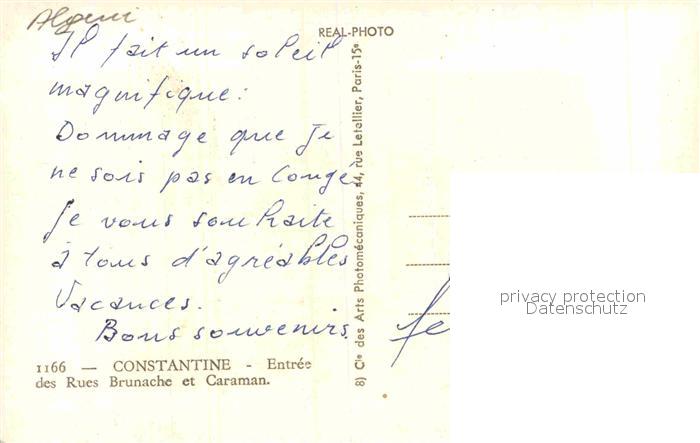 Algeri
REAL-PHOTO
Il fait un soleil
magnifique:
Dommage que je
ne sois pas en Congé.
Je vous souhaite
à tous d'agréables
Vacances.
Bons souvenirs.
1166 — CONSTANTINE - Entrée
des Rues Brunache et Caraman.
8) Cie des Arts Photomécaniques, 44, rue Letellier, Paris-15e
privacy protection
Datenschutz